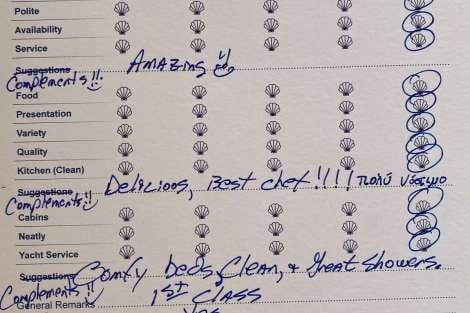 Polite
Availability
Service
Suggestions Amazing
Complements!!
Food
Presentation
Variety
Quality
Kitchen (Clean)
Suggestions Delicious, Best chef!!!! πολύ
Complements!!
Cabins
Neatly
Yacht Service
Suggestions Comfy beds, Clean, & Great Showers.
Complements!! 1st Class
General Remarks